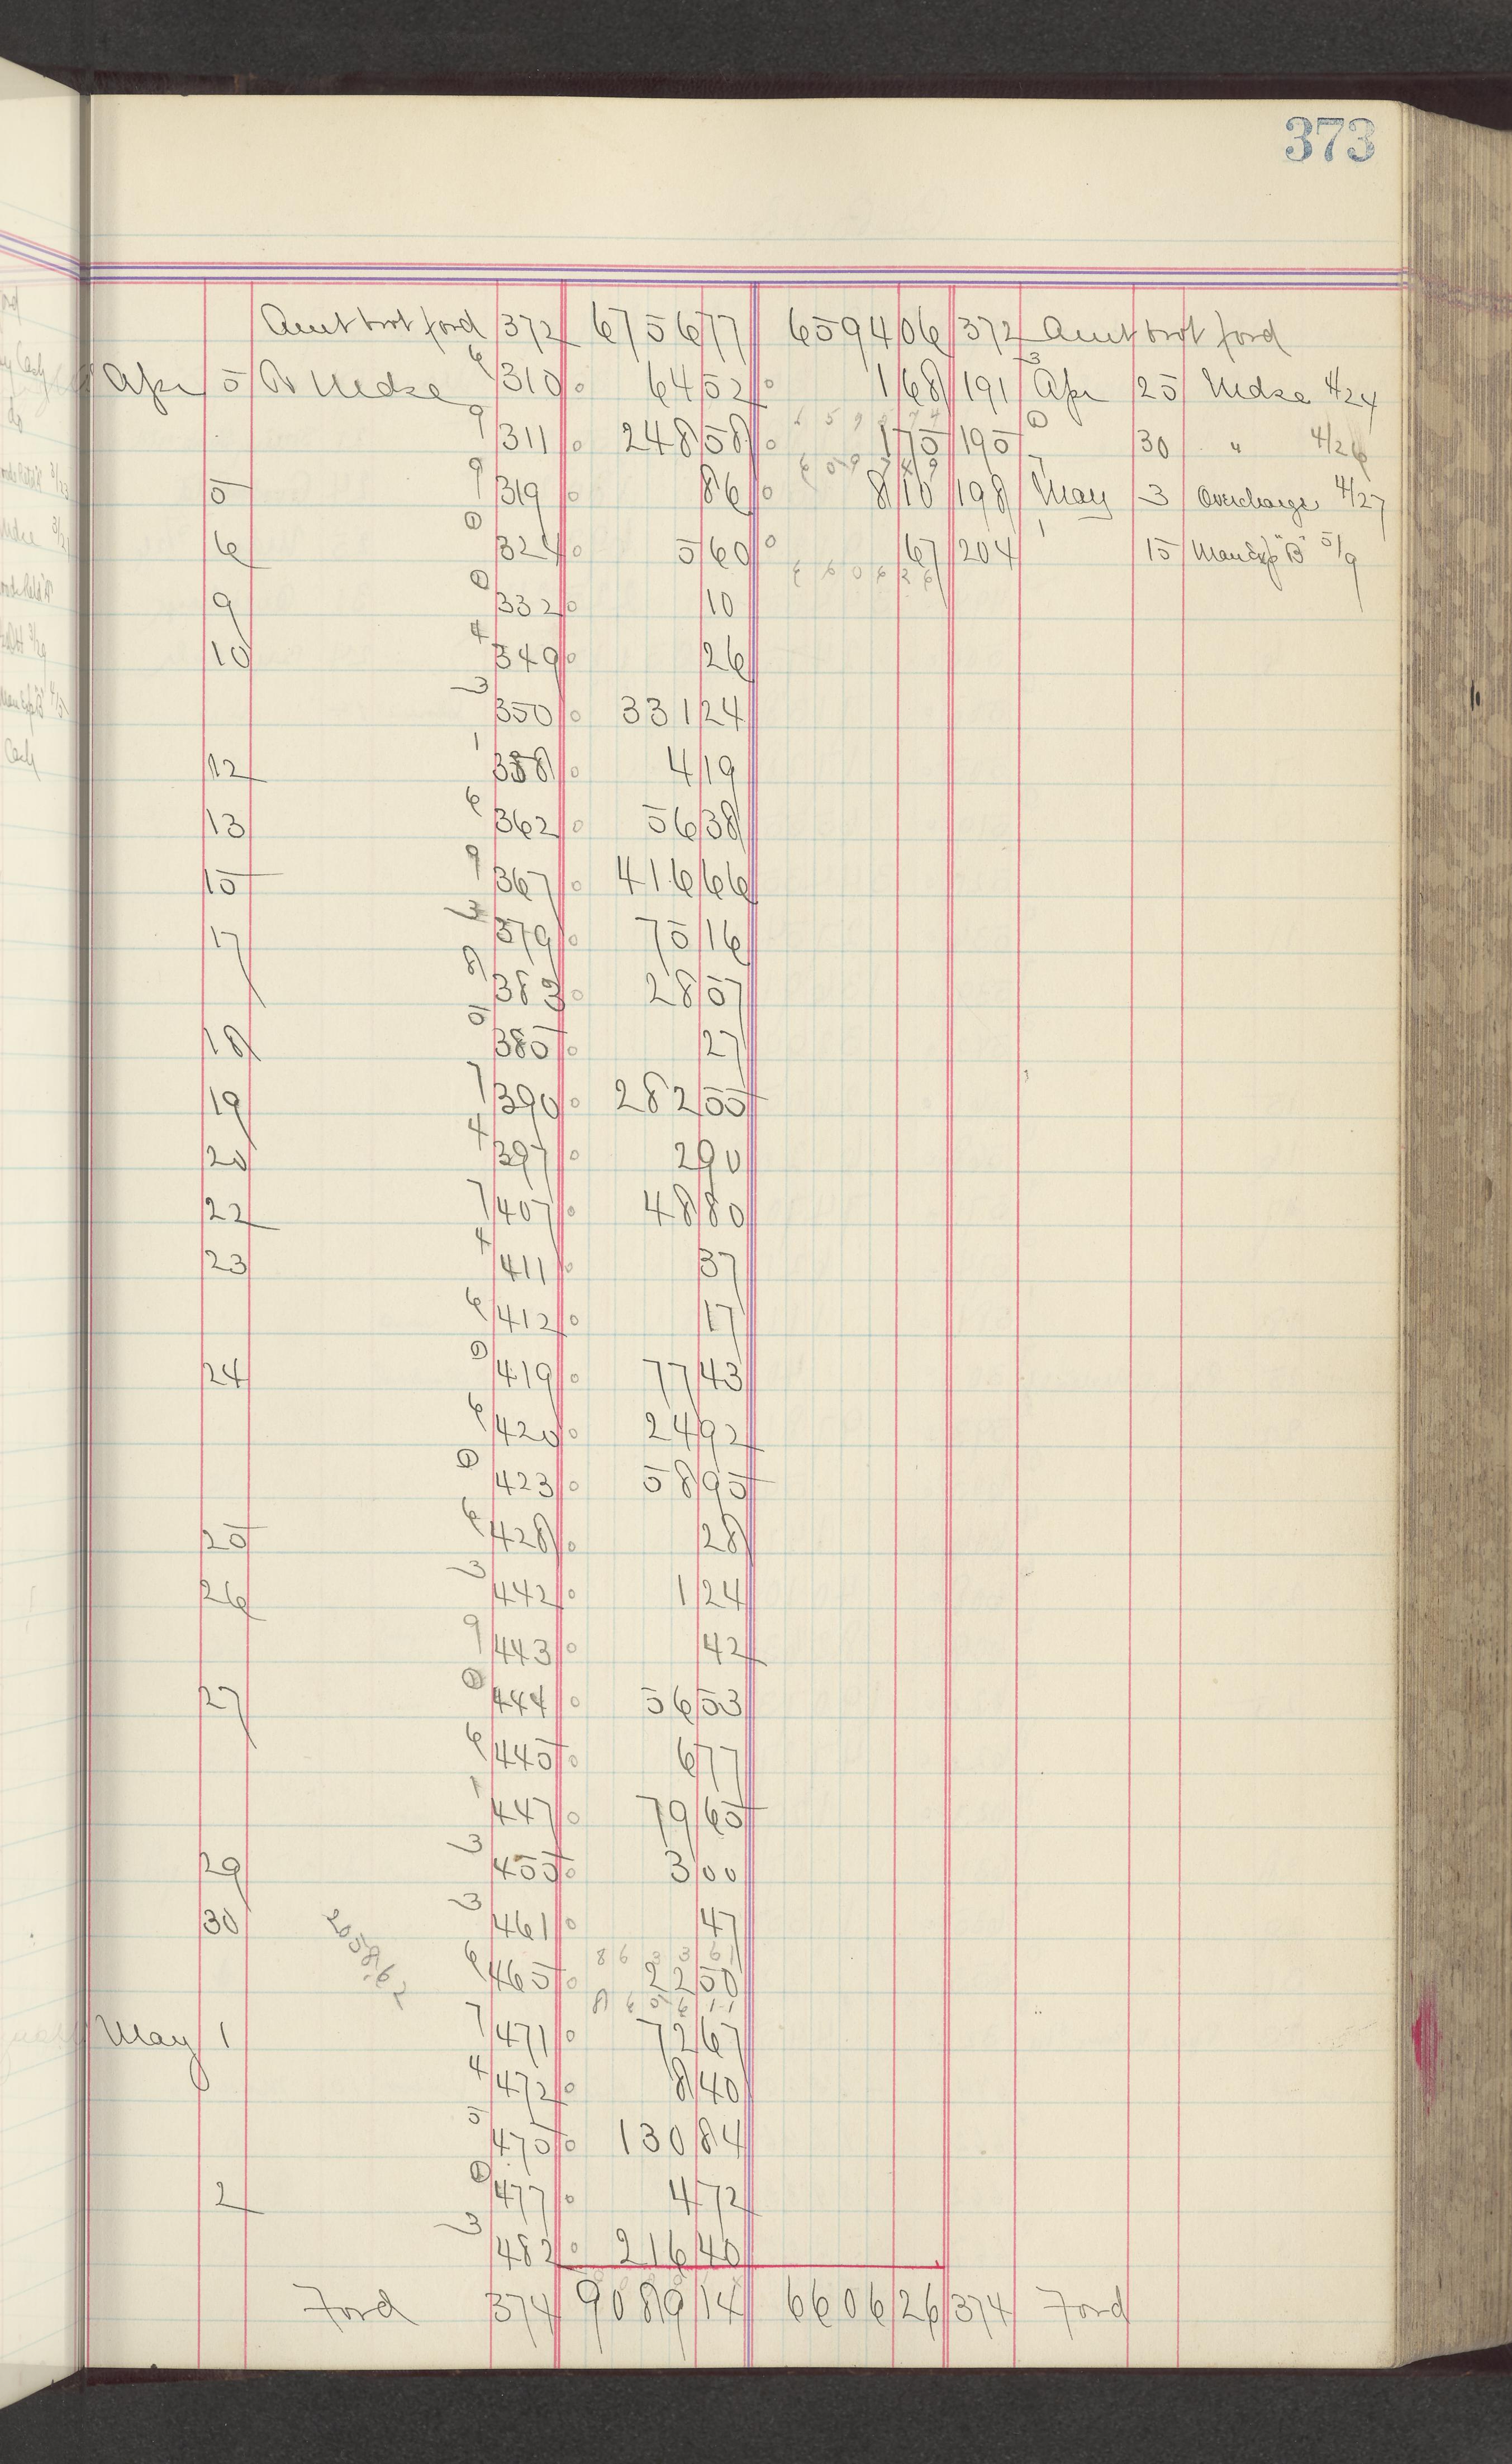 373
Amt brot ford 372 6756 77 6594 06 372 Amt brot ford
Apr 5 By Mdse 6 310 64 52 1 68 191 3 Apr 25 Mdse 4/24
9 311 248 58 1 75 195 30 " 4/26
5 9 319 86 8 10 198 7 May 3 Overcharge 4/27
6 324 5 60 67 204 1 15 Man Exp "B" 5/9
6 6 0 6 2 6
9 332 10
10 4 349 26
3 350 331 24
12 1 358 4 19
13 6 362 56 38
15 9 367 416 66
17 3 379 75 16
8 383 28 57
18 5 385 27
19 7 390 282 55
20 4 397 2 90
22 7 407 48 80
23 4 411 37
6 412 17
24 419 77 43
6 420 24 92
423 58 95
25 6 428 28
26 3 442 1 24
9 443 42
27 444 56 53
6 445 6 77
1 447 79 65
29 3 455 3 00
30 3 461 47
8 6 3 3 6 1
6 465 22 50
8 6 5 6 1 1
May 1 7 471 72 67
4 472 8 40
5 475 130 84
2 477 4 72
3 482 216 40
Ford 374 9089 14 6606 26 374 Ford